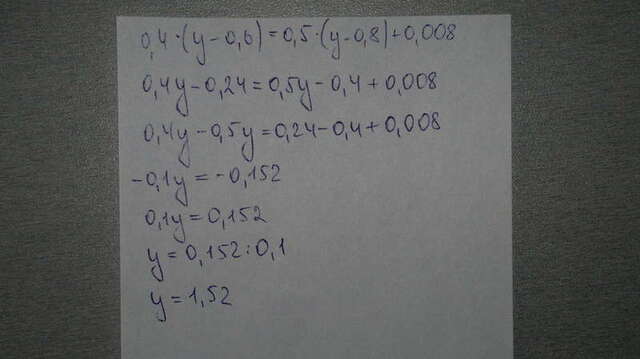 0,4·(y-0,6)=0,5·(y-0,8)+0,008
0,4y-0,24=0,5y-0,4+0,008
0,4y-0,5y=0,24-0,4+0,008
-0,1y=-0,152
0,1y=0,152
y=0,152:0,1
y=1,52